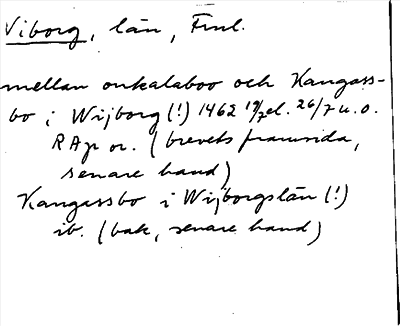 Viborg, län, Finl.
mellan onkalaboo och Kangass-
bo i Wijborg (!) 1462 19/7 el. 26/7 u.o.
RAp or. (brevets framsida,
senare hand)
Kangassbo i Wijborgslän (!)
ib. (bak, senare hand)